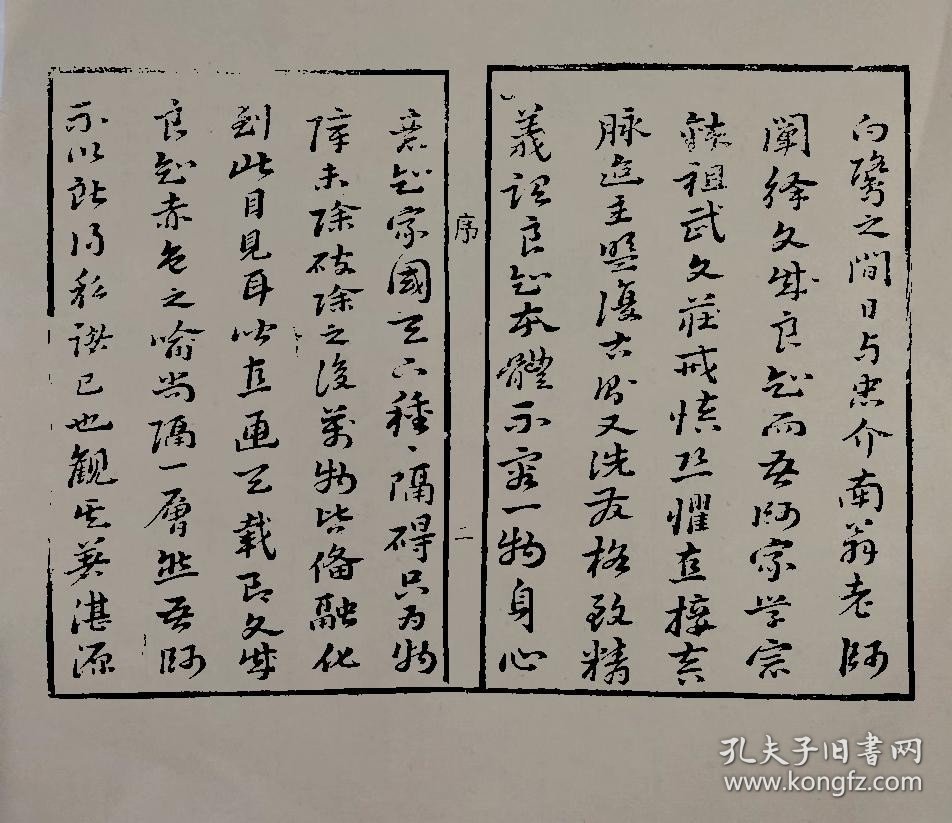 白鹭之間日与忠介南翁老師
闡绎文成良知而吾師家学宗
祖武文莊戒慎恐懼直接真
脉追主盟復古又洗发格致精
義謂良知本體不容一物身心
意知家國天下種〻隔碍只为物
障未除破除之後萬物皆備融化
到此目見耳聆直通天載即文成
良知赤色之喻尚隔一層然吾師
示以
私
已也觀其
湛源
序
二
孔夫子旧书网
www.kongfz.com